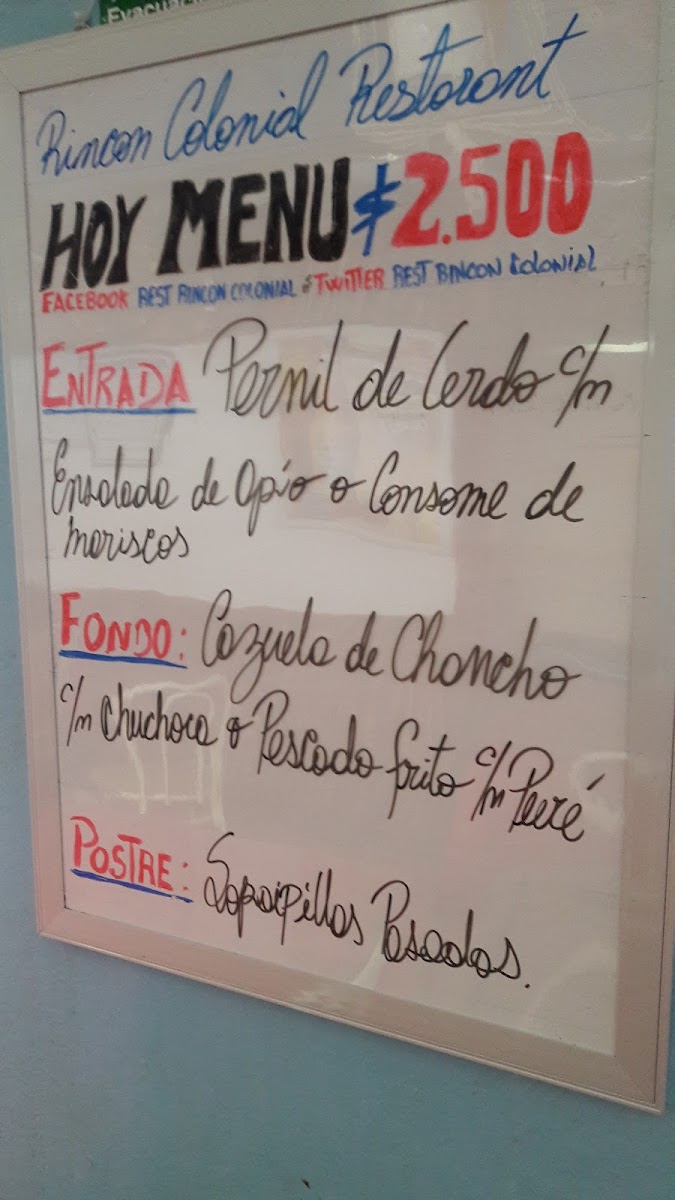 Evacuac
Rincon Colonial Restorant
HOY MENU $2.500
FACEBOOK REST RINCON COLONIAL TWITTER REST RINCON COLONIAL
ENTRADA Pernil de Cerdo c/n
Ensalada de Apio o Consome de
mariscos
FONDO: Cazuela de Chancho
c/n Chuchoca o Pescado frito c/n Puré
POSTRE: Sopaipillas Pasadas.